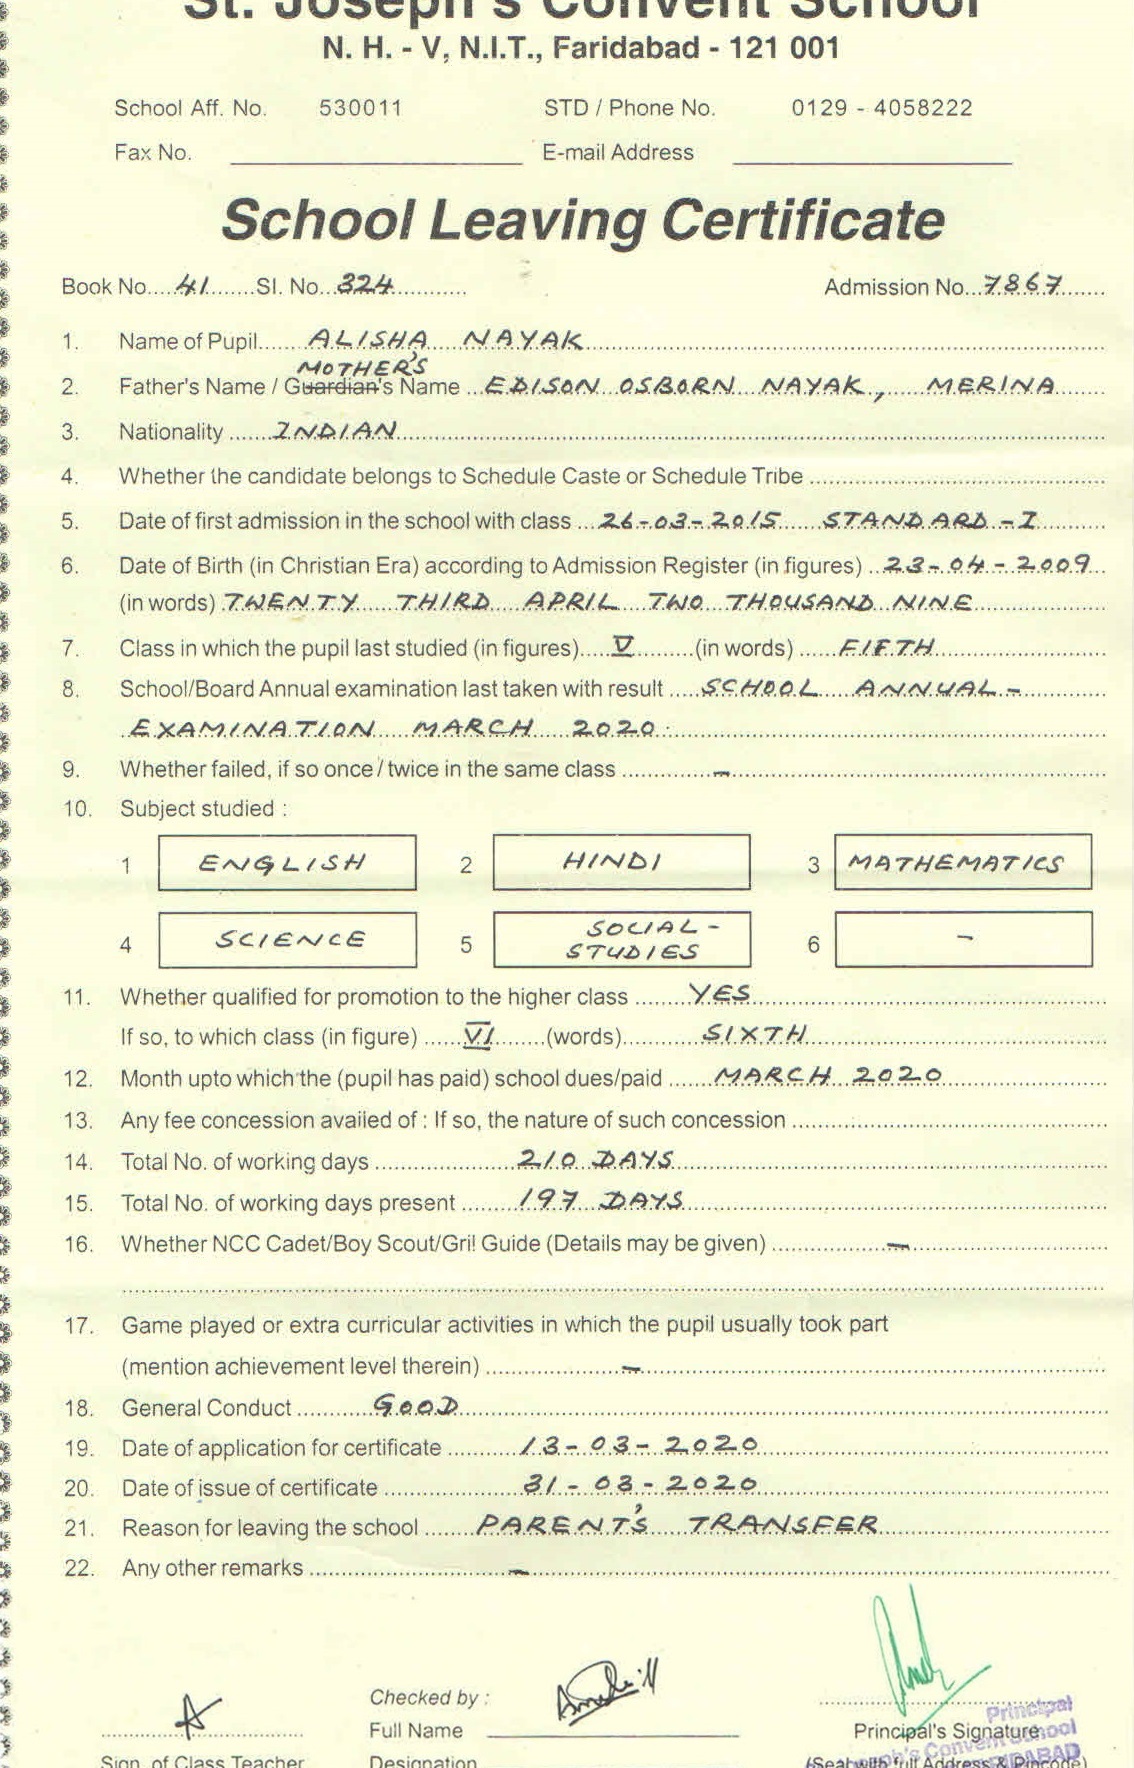 St. Joseph's Convent School
N. H. - V, N.I.T., Faridabad - 121 001
School Aff. No. 530011 STD / Phone No. 0129 - 4058222
Fax No. E-mail Address
School Leaving Certificate
Book No. 41 Sl. No. 324 Admission No. 7867
1. Name of Pupil ALISHA NAYAK
MOTHER'S
2. Father's Name / Guardian's Name EDISON OSBORN NAYAK, MERINA
3. Nationality INDIAN
4. Whether the candidate belongs to Schedule Caste or Schedule Tribe
5. Date of first admission in the school with class 26-03-2015 STANDARD - I
6. Date of Birth (in Christian Era) according to Admission Register (in figures) 23-04-2009
(in words) TWENTY THIRD APRIL TWO THOUSAND NINE
7. Class in which the pupil last studied (in figures) V (in words) FIFTH
8. School/Board Annual examination last taken with result SCHOOL ANNUAL -
EXAMINATION MARCH 2020
9. Whether failed, if so once/twice in the same class -
10. Subject studied :
1 ENGLISH 2 HINDI 3 MATHEMATICS
4 SCIENCE 5 SOCIAL - STUDIES 6 -
11. Whether qualified for promotion to the higher class YES
If so, to which class (in figure) VI (words) SIXTH
12. Month upto which the (pupil has paid) school dues/paid MARCH 2020
13. Any fee concession availed of : If so, the nature of such concession
14. Total No. of working days 210 DAYS
15. Total No. of working days present 197 DAYS
16. Whether NCC Cadet/Boy Scout/Gril Guide (Details may be given) -
17. Game played or extra curricular activities in which the pupil usually took part
(mention achievement level therein) -
18. General Conduct GOOD
19. Date of application for certificate 13-03-2020
20. Date of issue of certificate 31-03-2020
21. Reason for leaving the school PARENT'S TRANSFER
22. Any other remarks -
Checked by :
Full Name
Principal
Principal's Signature
Sign. of Class Teacher Designation (Seal with full Address & Pincode)